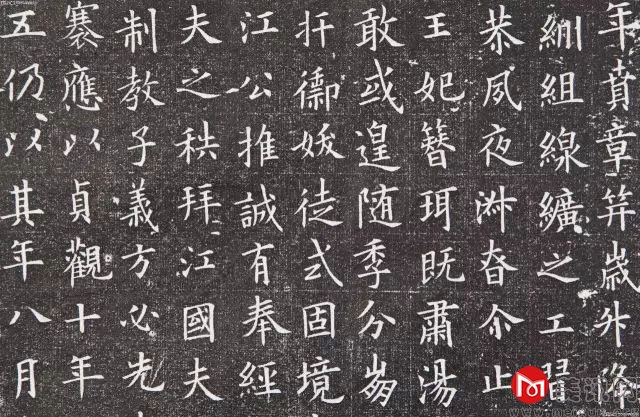 年賁章笄歲升降
紃組線纊之工
恭夙夜渊眘尒止
王妃簪珥既肅湯
敢或遑随季分崩
扞禦媛徒弍固境
江公推誠有奉經
夫之秩拜江國夫
制教子義方必先
褰應以貞觀十年
五仍以其年八月